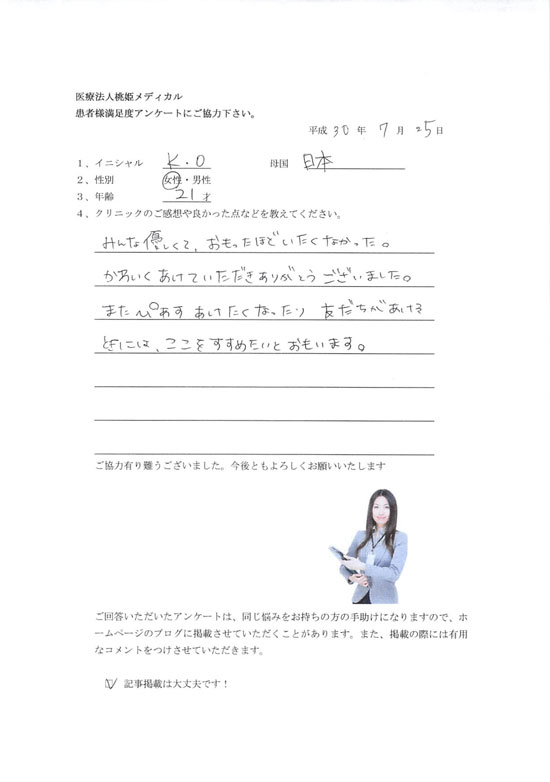 医療法人桃姫メディカル
患者様満足度アンケートにご協力下さい。
平成 30 年 7 月 25 日
1、イニシャル K.O 母国 日本
2、性別 女性・男性
3、年齢 21 才
4、クリニックのご感想や良かった点などを教えてください。
みんな優しくて、おもったほどいたくなかった。
かわいくあけていただきありがとうございました。
またぴあすあけたくなったり 友だちがあける
ときには、ここをすすめたいとおもいます。
ご協力有り難うございました。今後ともよろしくお願いいたします
ご回答いただいたアンケートは、同じ悩みをお持ちの方の手助けになりますので、ホ
ームページのブログに掲載させていただくことがあります。また、掲載の際には有用
なコメントをつけさせていただきます。
☑ 記事掲載は大丈夫です！